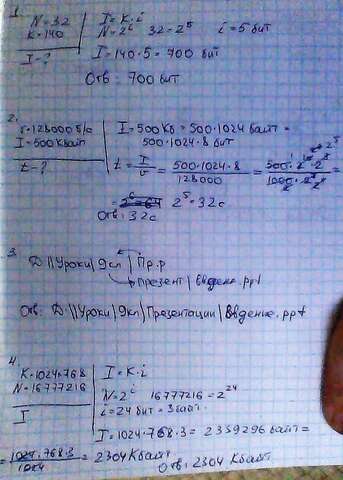 1.
N=32
K=140
I-?
I=K·i
N=2^i 32=2^5 i=5 бит
I=140·5=700 бит
Отв: 700 бит
2.
v=128000 б/с
I=500 Кбайт
t-?
I=500 Кб=500·1024 байт=
500·1024·8 бит
t=I/v=500·1024·8/128000=
2^5=32с
Отв: 32с
3.
Д:\\Уроки|9кл|Пр.р
Презент|Введение.ppt
Отв: Д:\\Уроки|9кл|Презентации|Введение.ppt
4.
K=1024·768
N=16777216
I
I=K·i
N=2^i 16777216=2^24
i=24 бит=3 байт.
I=1024·768·3=2359296 байт=
=1024·768·3/1024=2304 Кбайт
Отв. 2304 Кбайт